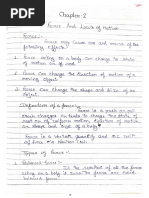 Chapter-1
Force And Laws of Motion
Force:-
Force may cause one and more of the
following effects.
1. Force acting on a body can change the state
of
2. Force can change the direction of motion of a
moving object.
3. Force can change the shape and size of
an object.
Definition of a force:-
Force is a push or pull
which changes or tends to change the state of
rest or of uniform motion, direction of motion
or the shape and size of a body.
Force is a vector quantity and its SI unit
is
Types of force:-
1. Balanced force:-
If the resultant of all the forces
acting on a body is zero the forces are called
balanced